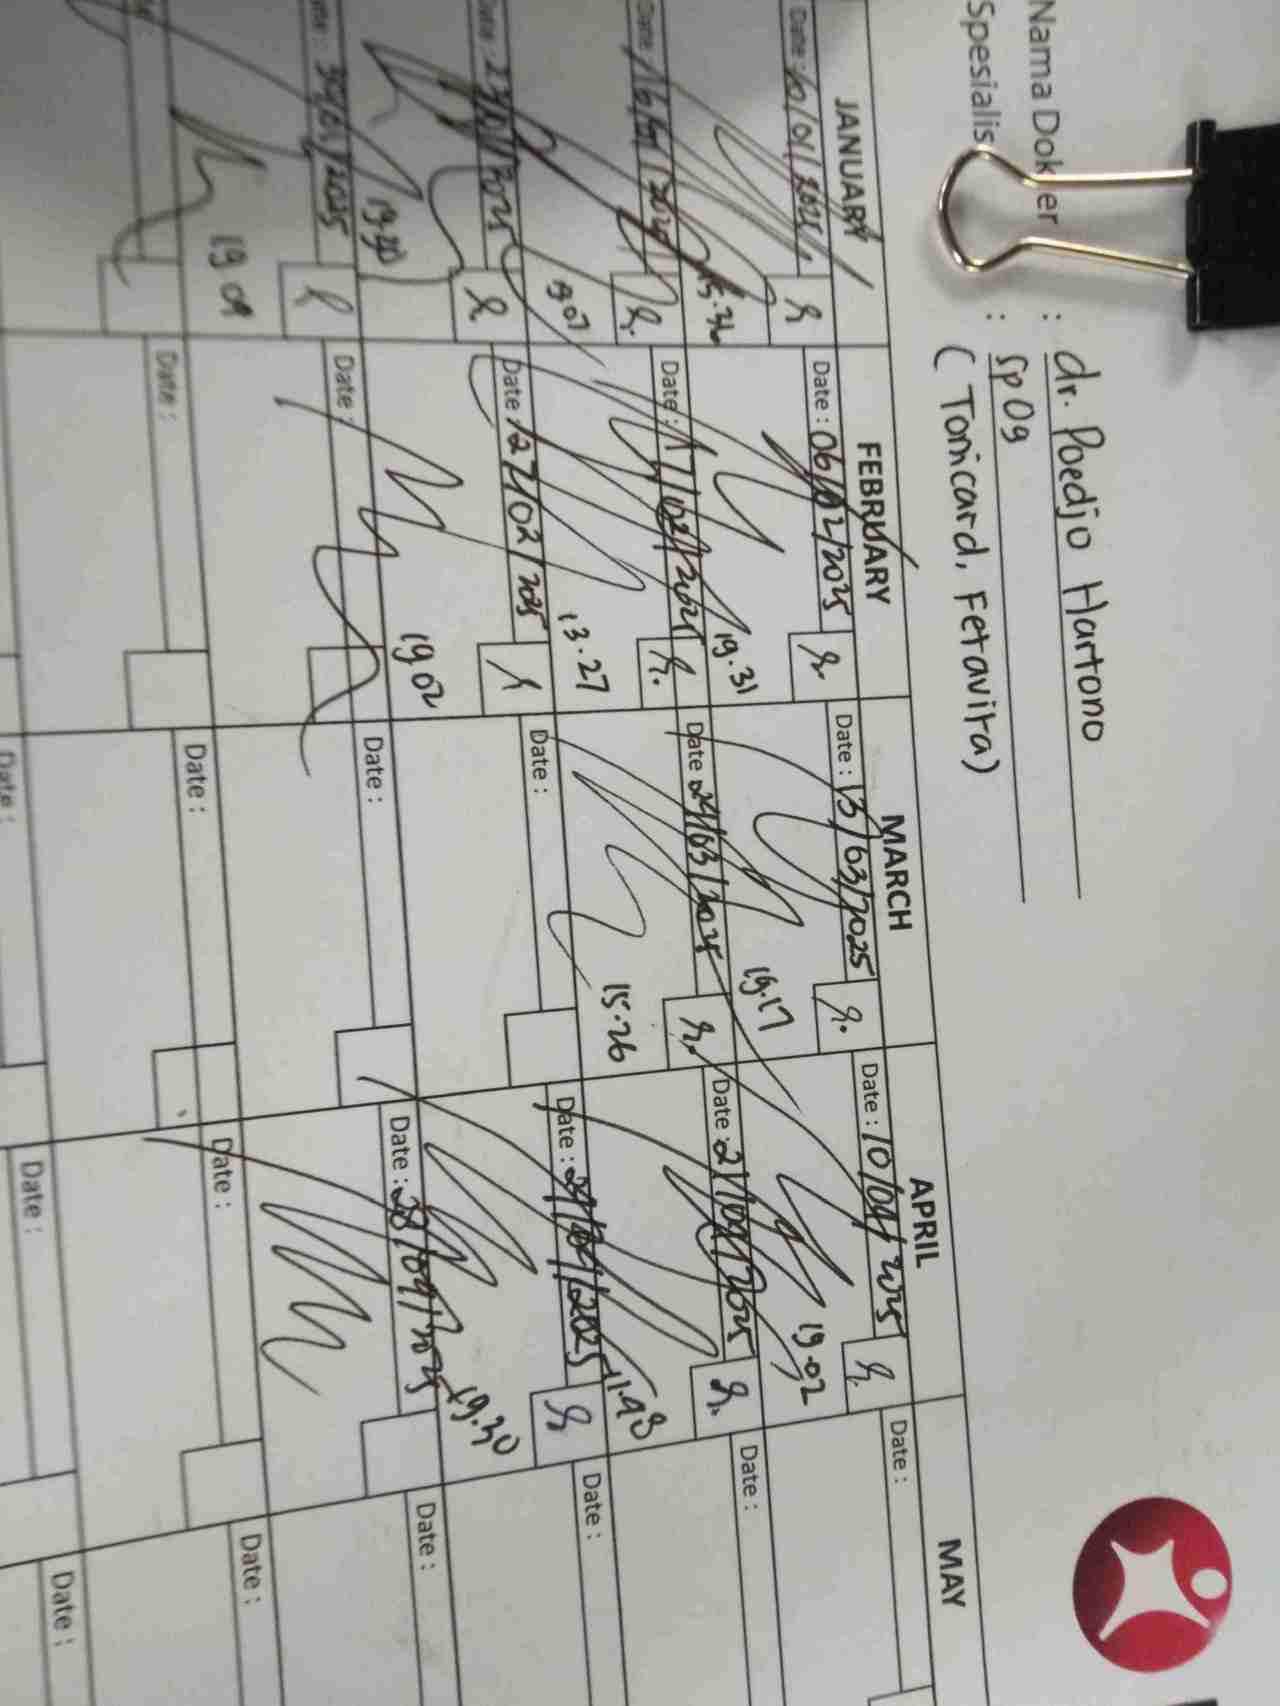 Nama Dokter : dr. Poedjo Hartono
Spesialis : SpOg
( Tonicard, Fetavita)
JANUARY FEBRUARY MARCH APRIL MAY
Date : 10/01/2025 Date : 06/02/2025 Date : 13/03/2025 Date : 10/04/2025 Date :
15.36 19.31 19.17 19.02
Date : 16/01/2025 Date : 17/02/2025 Date : 24/03/2025 Date : 21/04/2025 Date :
19.07 13.27 15.26 11.48
Date : 23/01/2025 Date : 27/02/2025 Date : Date : 24/04/2025 Date :
19.20 19.02 19.30
Date : 30/01/2025 Date : Date : Date : 28/04/2025 Date :
19.09
Date : Date : Date : Date :
Date : Date : Date :